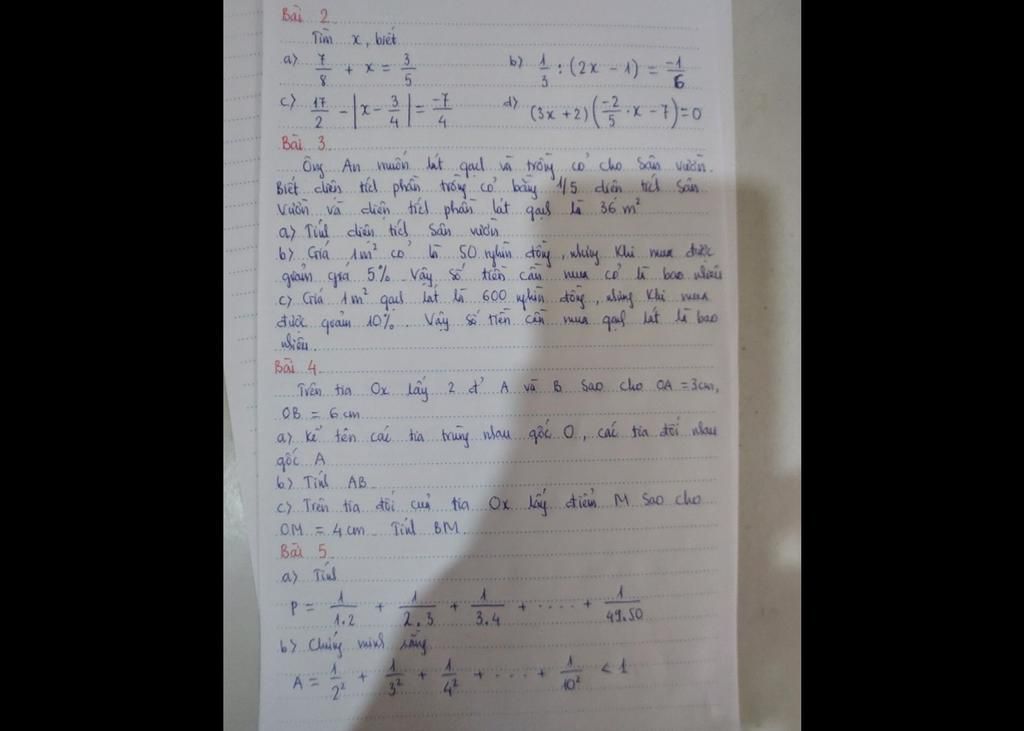 Bài 2
Tìm x, biết
a) 7/8 + x = 3/5
b) 1/3 : (2x - 1) = -1/6
c) 17/2 - |x - 3/4| = -7/4
d) (3x + 2)(-2/5 · x - 7) = 0
Bài 3
Ông An muốn lát gạch và trồng cỏ cho sân vườn.
Biết diện tích phần trồng cỏ bằng 1/5 diện tích sân
vườn và diện tích phần lát gạch là 36 m²
a) Tính diện tích sân vườn
b) Giá 1m² cỏ là 50 nghìn đồng, nhưng khi mua được
giảm giá 5%. Vậy số tiền cần mua cỏ là bao nhiêu
c) Giá 1m² gạch lát là 600 nghìn đồng, nhưng khi mua
được giảm 10%. Vậy số tiền cần mua gạch lát là bao
nhiêu.
Bài 4
Trên tia Ox lấy 2 đ' A và B sao cho OA = 3cm,
OB = 6 cm
a) Kể tên các tia trùng nhau gốc O, các tia đối nhau
gốc A
b) Tính AB
c) Trên tia đối của tia Ox lấy điểm M sao cho
OM = 4 cm. Tính BM.
Bài 5
a) Tính
P = 1/1.2 + 1/2.3 + 1/3.4 + ..... + 1/49.50
b) Chứng minh rằng
A = 1/2² + 1/3² + 1/4² + ... + 1/10² < 1